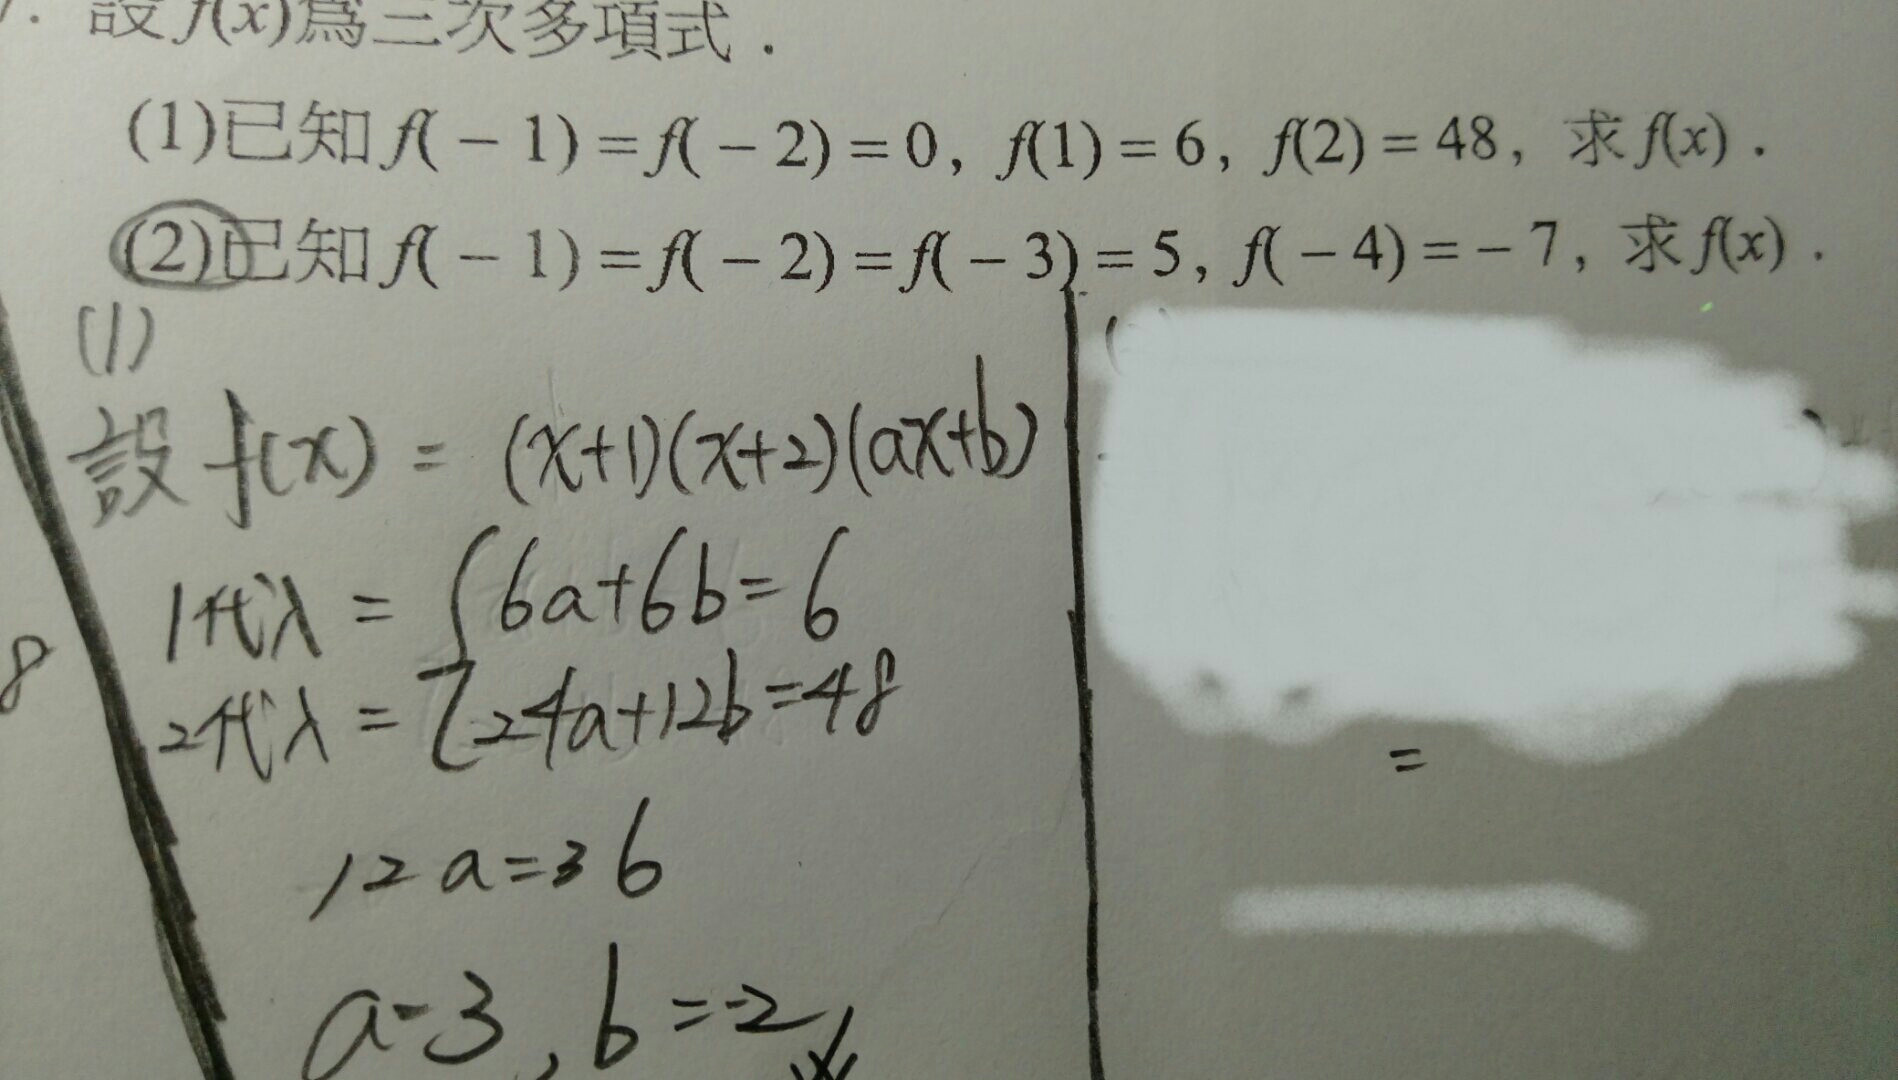 設f(x)為三次多項式.
(1)已知f(-1)=f(-2)=0, f(1)=6, f(2)=48, 求f(x).
(2)已知f(-1)=f(-2)=f(-3)=5, f(-4)=-7, 求f(x).
(1)
設f(x) = (x+1)(x+2)(ax+b)
1代入 = { 6a+6b=6
2代入 = { 24a+12b=48
12a=36
a=3, b=-2
8
=